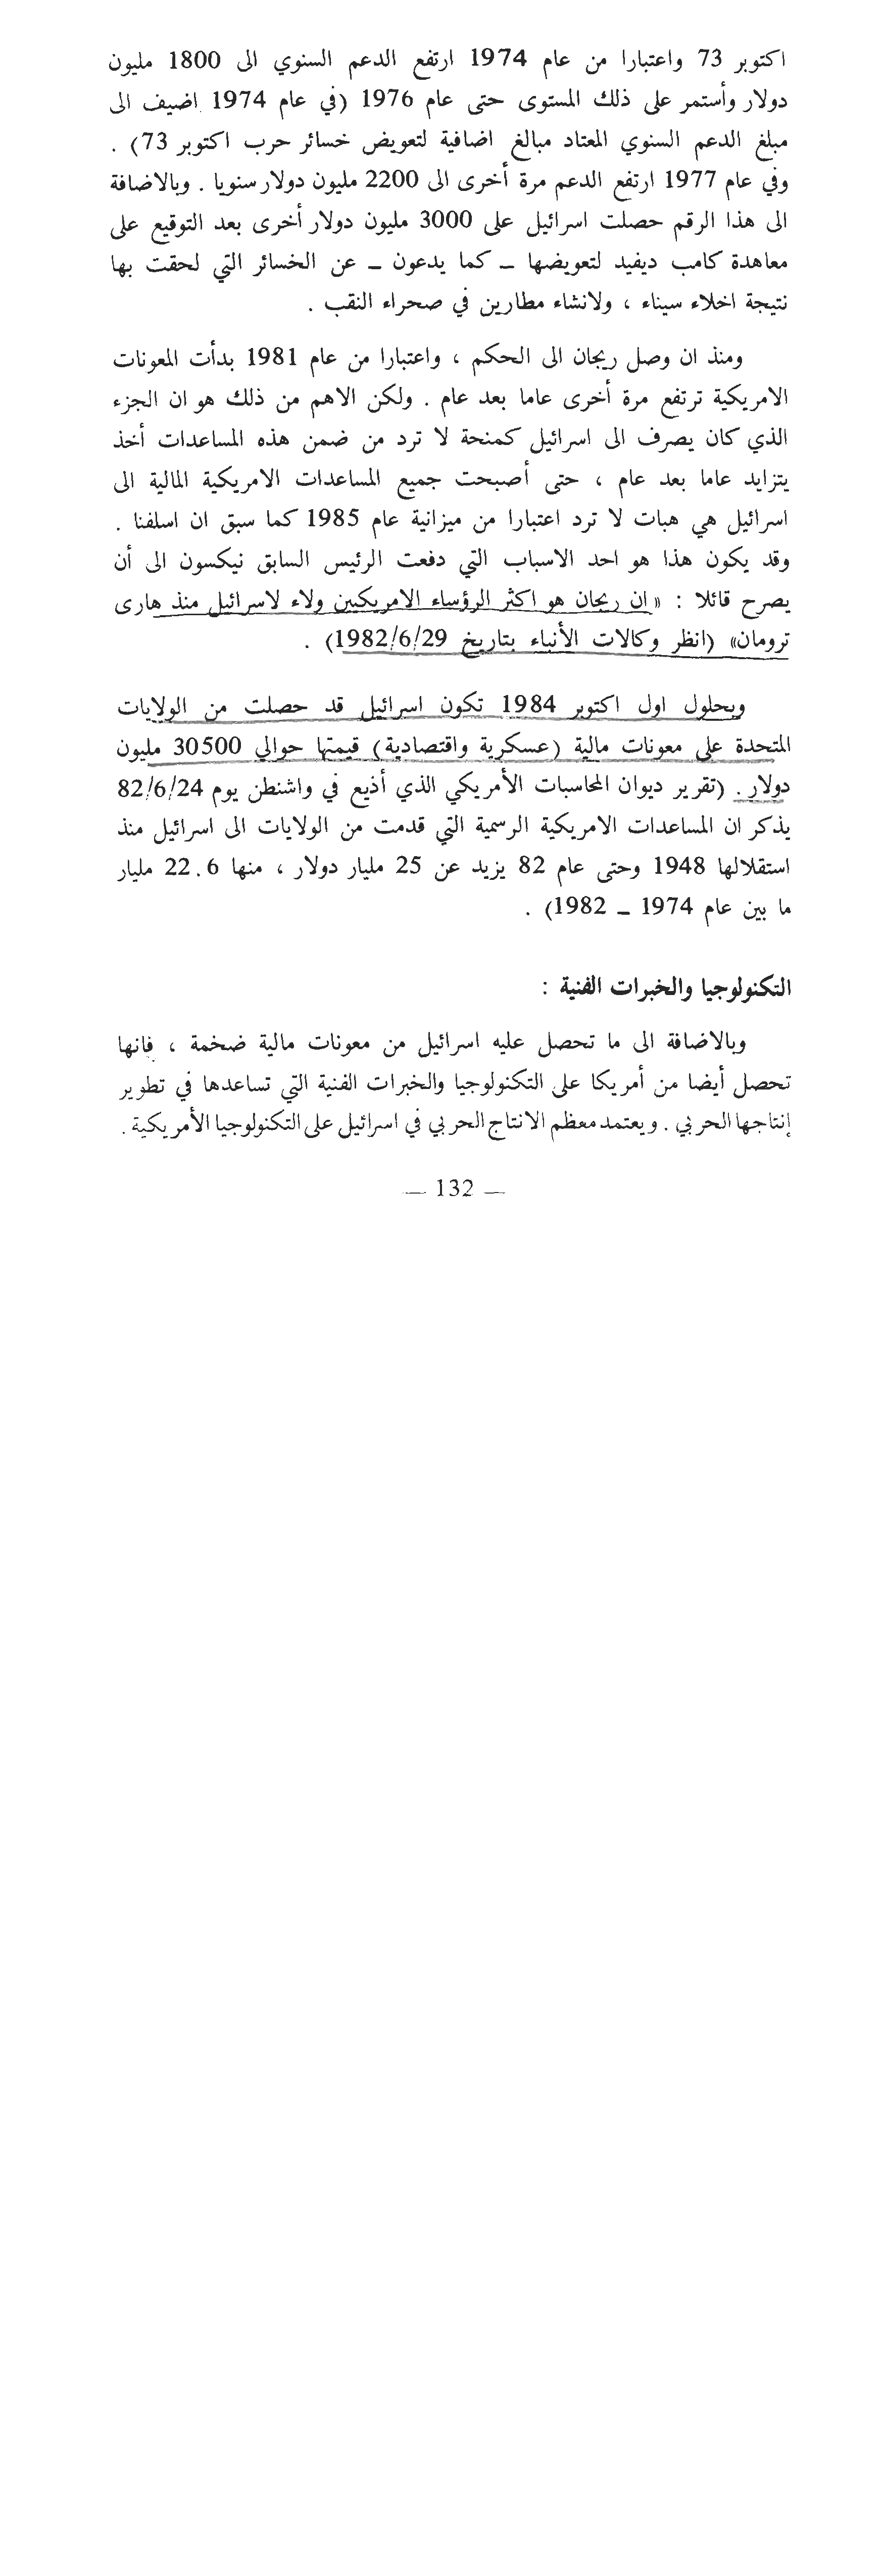 اكتوبر 73 واعتبارا من عام 1974 ارتفع الدعم السنوي الى 1800 مليون
دولار وأستمر على ذلك المستوى حتى عام 1976 (في عام 1974 اضيف الى
مبلغ الدعم السنوي المعتاد مبالغ اضافية لتعويض خسائر حرب اكتوبر 73) .
وفي عام 1977 ارتفع الدعم مرة أخرى الى 2200 مليون دولار سنويا . وبالاضافة
الى هذا الرقم حصلت اسرائيل على 3000 مليون دولار أخرى بعد التوقيع على
معاهدة كامب ديفيد لتعويضها ــ كما يدعون ــ عن الخسائر التي لحقت بها
نتيجة اخلاء سيناء ، ولانشاء مطارين في صحراء النقب .
ومنذ ان وصل ريجان الى الحكم ، واعتبارا من عام 1981 بدأت المعونات
الامريكية ترتفع مرة أخرى عاما بعد عام . ولكن الاهم من ذلك هو ان الجزء
الذي كان يصرف الى اسرائيل كمنحة لا ترد من ضمن هذه المساعدات أخذ
يتزايد عاما بعد عام ، حتى أصبحت جميع المساعدات الامريكية المالية الى
اسرائيل هي هبات لا ترد اعتبارا من ميزانية عام 1985 كما سبق ان اسلفنا .
وقد يكون هذا هو احد الاسباب التي دفعت الرئيس السابق نيكسون الى أن
يصرح قائلا : «ان ريجان هو اكثر الرؤساء الامريكيين ولاء لاسرائيل منذ هارى
ترومان» (انظر وكالات الأنباء بتاريخ 1982/6/29) .
وبحلول اول اكتوبر 1984 تكون اسرائيل قد حصلت من الولايات
المتحدة على معونات مالية (عسكرية واقتصادية) قيمتها حوالي 30500 مليون
دولار . (تقرير ديوان المحاسبات الأمريكي الذي أذيع في واشنطن يوم 82/6/24
يذكر ان المساعدات الامريكية الرسمية التي قدمت من الولايات الى اسرائيل منذ
استقلالها 1948 وحتى عام 82 يزيد عن 25 مليار دولار ، منها 22.6 مليار
ما بين عام 1974 ــ 1982) .
التكنولوجيا والخبرات الفنية :
وبالاضافة الى ما تحصل عليه اسرائيل من معونات مالية ضخمة ، فانها
تحصل أيضا من أمريكا على التكنولوجيا والخبرات الفنية التي تساعدها في تطوير
إنتاجها الحربي . ويعتمد معظم الانتاج الحربي في اسرائيل على التكنولوجيا الأمريكية .
— 132 —